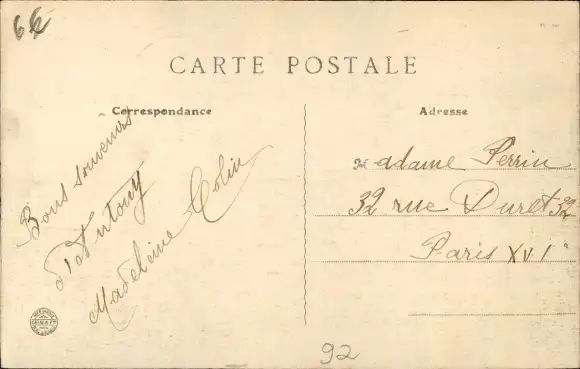 6
CARTE POSTALE
Correspondance
Adresse
Bons souvenirs
d'
Madeleine Colin
Madame Perrin
32 rue Duret 32
Paris XVI°
92